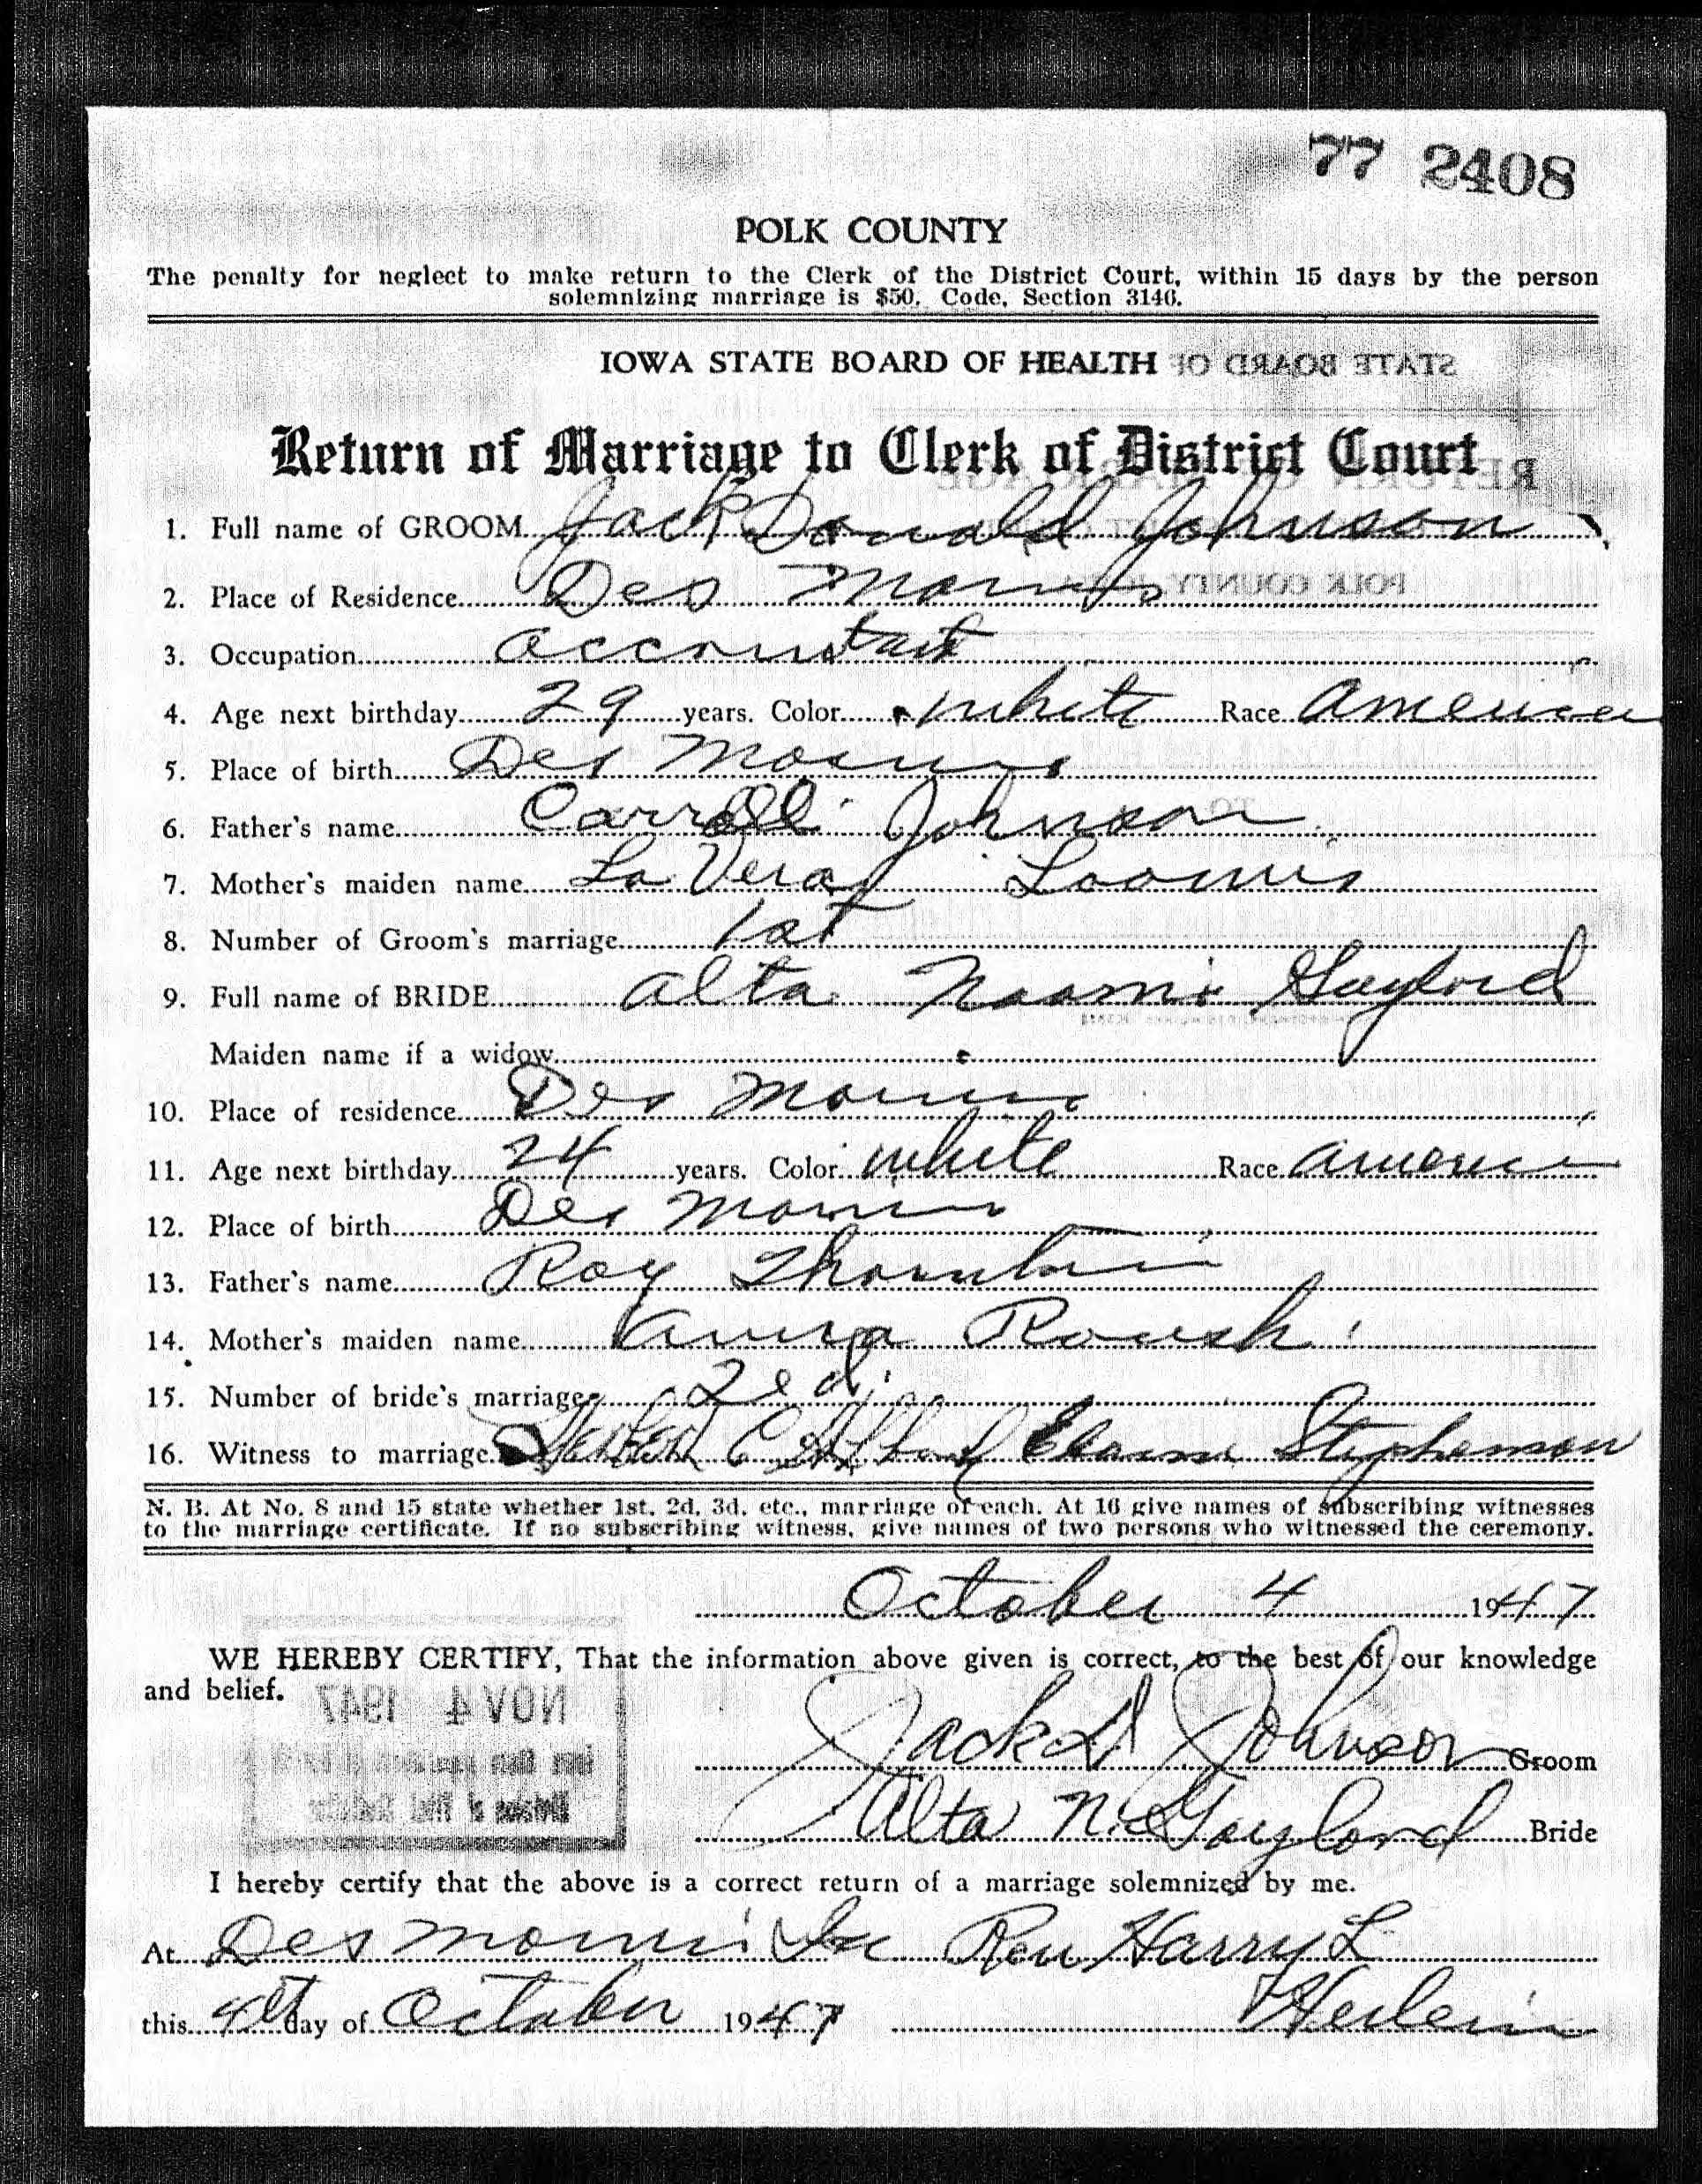 77 2408
POLK COUNTY
The penalty for neglect to make return to the Clerk of the District Court, within 15 days by the person
solemnizing marriage is $50. Code, Section 3146.
IOWA STATE BOARD OF HEALTH
Return of Marriage to Clerk of District Court
1. Full name of GROOM Jack Donald Johnson
2. Place of Residence Des Moines
3. Occupation accountant
4. Age next birthday 29 years. Color white Race American
5. Place of birth Des Moines
6. Father's name Carroll Johnson
7. Mother's maiden name La Vera Loomis
8. Number of Groom's marriage 1st
9. Full name of BRIDE Alta Naomi Gaylord
Maiden name if a widow
10. Place of residence Des Moines
11. Age next birthday 24 years. Color white Race American
12. Place of birth Des Moines
13. Father's name Roy
14. Mother's maiden name Roush
15. Number of bride's marriage 2ed
16. Witness to marriage C Elaine Stephenson
N. B. At No. 8 and 15 state whether 1st, 2d, 3d, etc., marriage of each. At 16 give names of subscribing witnesses
to the marriage certificate. If no subscribing witness, give names of two persons who witnessed the ceremony.
October 4 1947
WE HEREBY CERTIFY, That the information above given is correct, to the best of our knowledge
and belief.
NOV 4 1947
Jack D Johnson Groom
Alta N. Gaylord Bride
I hereby certify that the above is a correct return of a marriage solemnized by me.
At Des Moines Ia Rev Harry L
this 4th day of October 1947